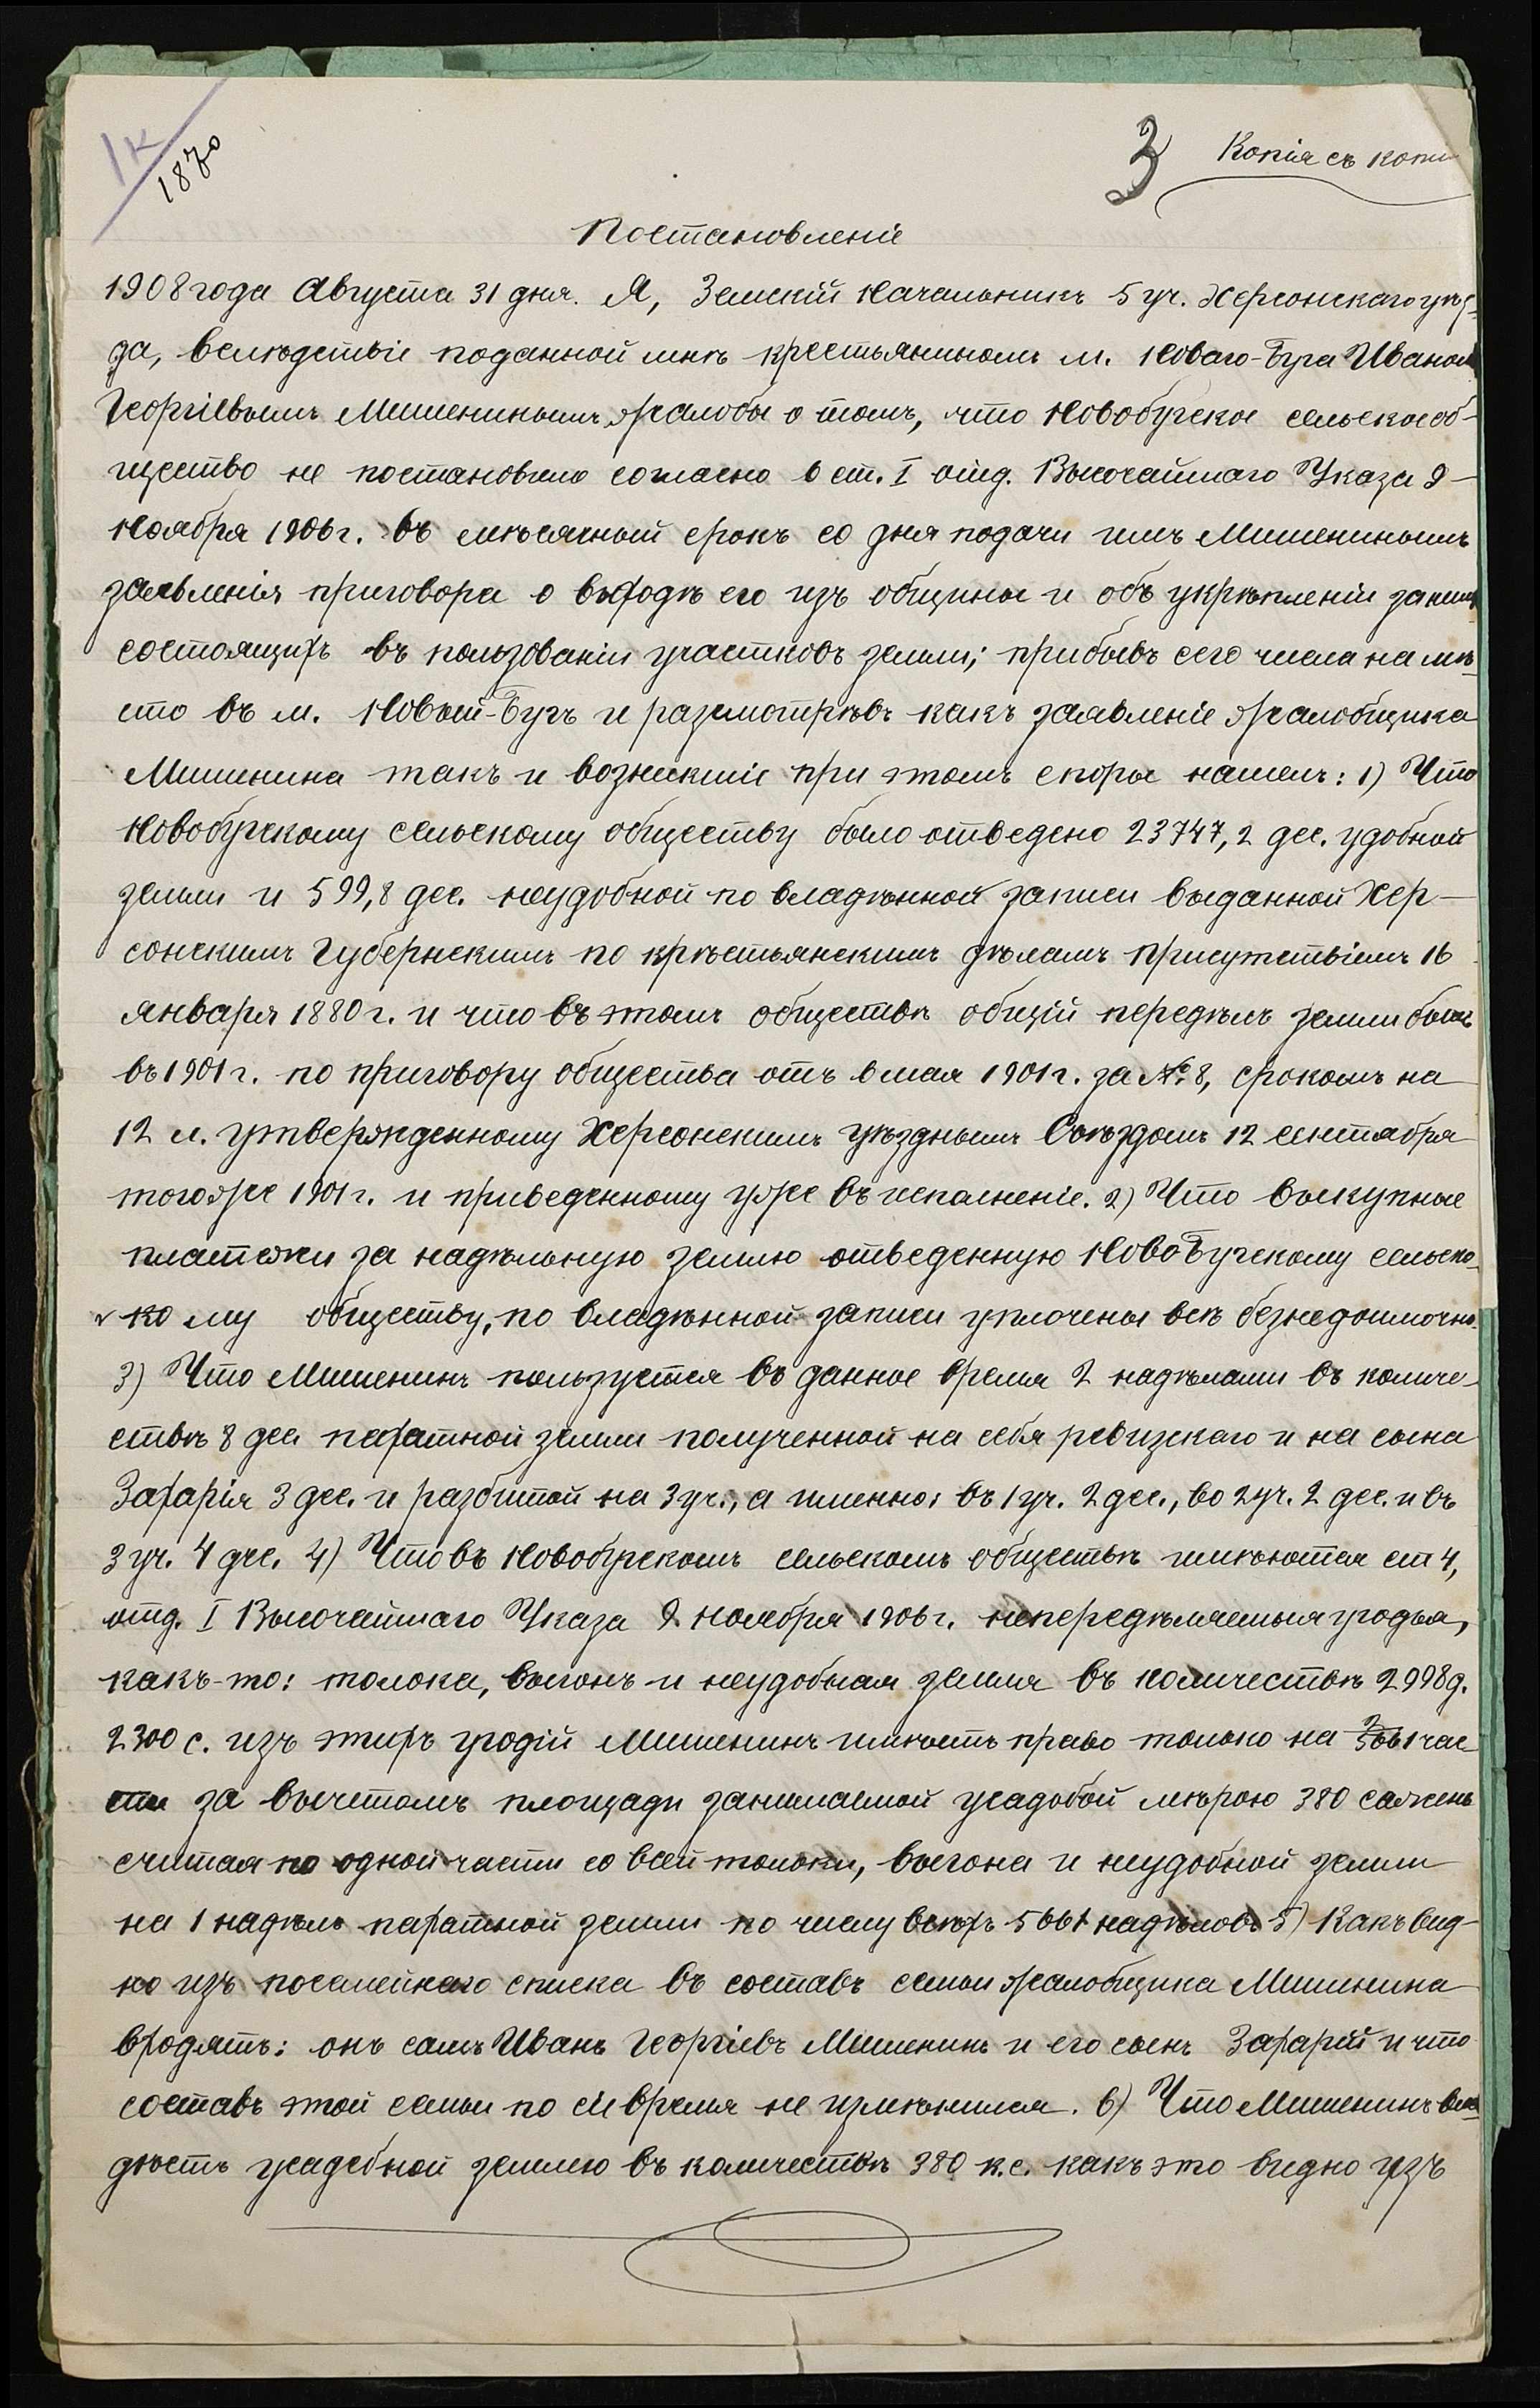 1к
1870
3 Копія съ копіи
Постановленіе
1908 года Августа 31 дня. Я, Земскій Начальникъ 5 уч. Херсонскаго уѣз-
да, вслѣдствіе поданной мнѣ крестьяниномъ м. Новаго-Буга Иваномъ
Георгіевымъ Мишенинымъ жалобы о томъ, что Новобугское сельское об-
щество не постановило согласно 6 ст. I отд. Высочайшаго Указа 9
Ноября 1906 г. въ мѣсячный срокъ со дня подачи имъ Мишенинымъ
заявленія приговора о выходѣ его изъ общины и объ укрѣпленіи за нимъ
состоящихъ въ пользованіи участковъ земли; прибывъ сего числа на мѣ-
сто въ м. Новый-Бугъ и разсмотрѣвъ какъ заявленіе жалобщика
Мишенина такъ и возникшіе при этомъ споры нашелъ: 1) Что
Новобугскому сельскому обществу было отведено 23747,2 дес. удобной
земли и 599,8 дес. неудобной по владѣнной записи выданной Хер-
сонскимъ Губернскимъ по крѣстьянскимъ дѣламъ Присутствіемъ 16
января 1880 г. и что въ этомъ обществѣ общій передѣлъ земли былъ
въ 1901 г. по приговору общества отъ 6 мая 1901 г. за № 8, срокомъ на
12 л. утвержденному Херсонскимъ Уѣзднымъ Съѣздомъ 12 сентября
того же 1901 г. и приведенному уже въ исполненіе. 2) Что выкупные
платежи за надѣльную землю отведенную Ново Бугскому сельско-
кому обществу, по владѣнной записи уплочены всѣ безнедоимочно.
3) Что Мишенинъ пользуется въ данное время 2 надѣлами въ количе-
ствѣ 8 дес. пахатной земли полученной на себя ревизскаго и на сына
Захарія 3 дес. и разбитой на 3 уч., а именно: въ 1 уч. 2 дес., во 2 уч. 2 дес. и въ
3 уч. 4 дес. 4) Что въ Новобугскомъ сельскомъ обществѣ имѣются ст 4,
отд. I Высочайшаго Указа 9 ноября 1906 г. непередѣляемыя угодья,
какъ-то: толока, выгонъ и неудобная земля въ количествѣ 2998 д.
2300 с. изъ этихъ угодій Мишенинъ имѣетъ право только на 2/5661 час-
сти за вычетомъ площади занимаемой усадобой мѣрою 380 сажень
считая по одной части со всей толоки, выгона и неудобной земли
на 1 надѣлъ пахатной земли по числу всѣхъ 5661 надѣловъ 5) Какъ вид-
но изъ посемейнаго списка въ составъ семьи жалобщика Мишенина
входятъ: онъ самъ Иванъ Георгіевъ Мишенинъ и его сынъ Захарій и что
составъ этой семьи по сіе время не измѣнился. 6) Что Мишенинъ вла-
дѣетъ усадебной землею въ количествѣ 380 к.с. какъ это видно изъ